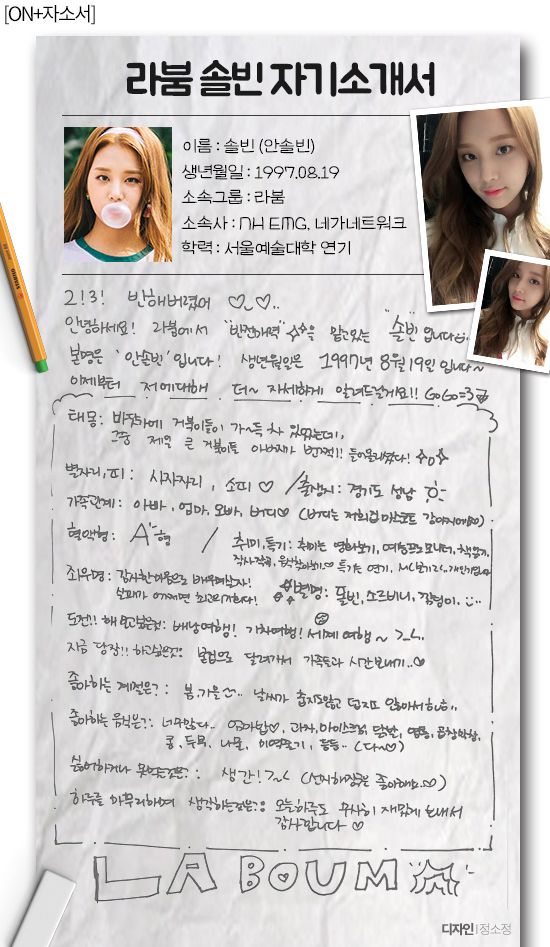 [ON+자소서]
라붐 솔빈 자기소개서
이름 : 솔빈 (안솔빈)
생년월일 : 1997.08.19
소속그룹 : 라붐
소속사 : NH EMG, 네가네트워크
학력 : 서울예술대학 연기
2!3! 반해버렸어 ♡_♡..
안녕하세요! 라붐에서 "반전매력"☆☆을 맡고있는 "솔빈"입니다
본명은 '안솔빈'입니다! 생년월일은 1997년 8월19일 입니다~
이제부터 저에대해 더~ 자세하게 알려드릴게요!! GoGo=3
태몽: 바닷가에 거북이들이 가~득 차 있었는데,
그중 제일 큰 거북이를 아버지가 번쩍!! 들어올리셨다!
별자리,띠: 사자자리, 소띠♡ / 출생지: 경기도 성남
가족관계: 아빠, 엄마, 오빠, 버디♡ (버디는 저희집 마스코트 강아지예요♡)
혈액형: A형 / 취미,특기: 취미는 영화보기, 예능프로모니터, 책읽기,
작사작곡, 음악찾아듣기 특기는 연기, MC보기
좌우명: 감사한마음으로 배우며살자!
별명: 폴빈, 소르비니, 깜덩이.
도전!! 해보고싶은것: 배낭여행! 기차여행! 세계여행~ >_<..
지금 당장!! 하고싶은것: 본집으로 달려가서 가족들과 시간보내기..♡
좋아하는 계절은?: 봄,가을 .. 날씨가 춥지도않고 덥지도 않아서
좋아하는 음식은?: 너무많다.. 엄마밥♡, 과자,아이스크림, 닭발, 곱창막창,
콩, 두부, 나물, 미역줄기, 등등.. (다~♡)
싫어하거나 무서운것은?: 생간!>_< (선지해장국은 좋아해요.♡)
하루를 마무리하며 생각하는것은?: 오늘하루도 무사히 재밌게 보내서
감사합니다 ♡
LABOUM
디자인 | 정소정